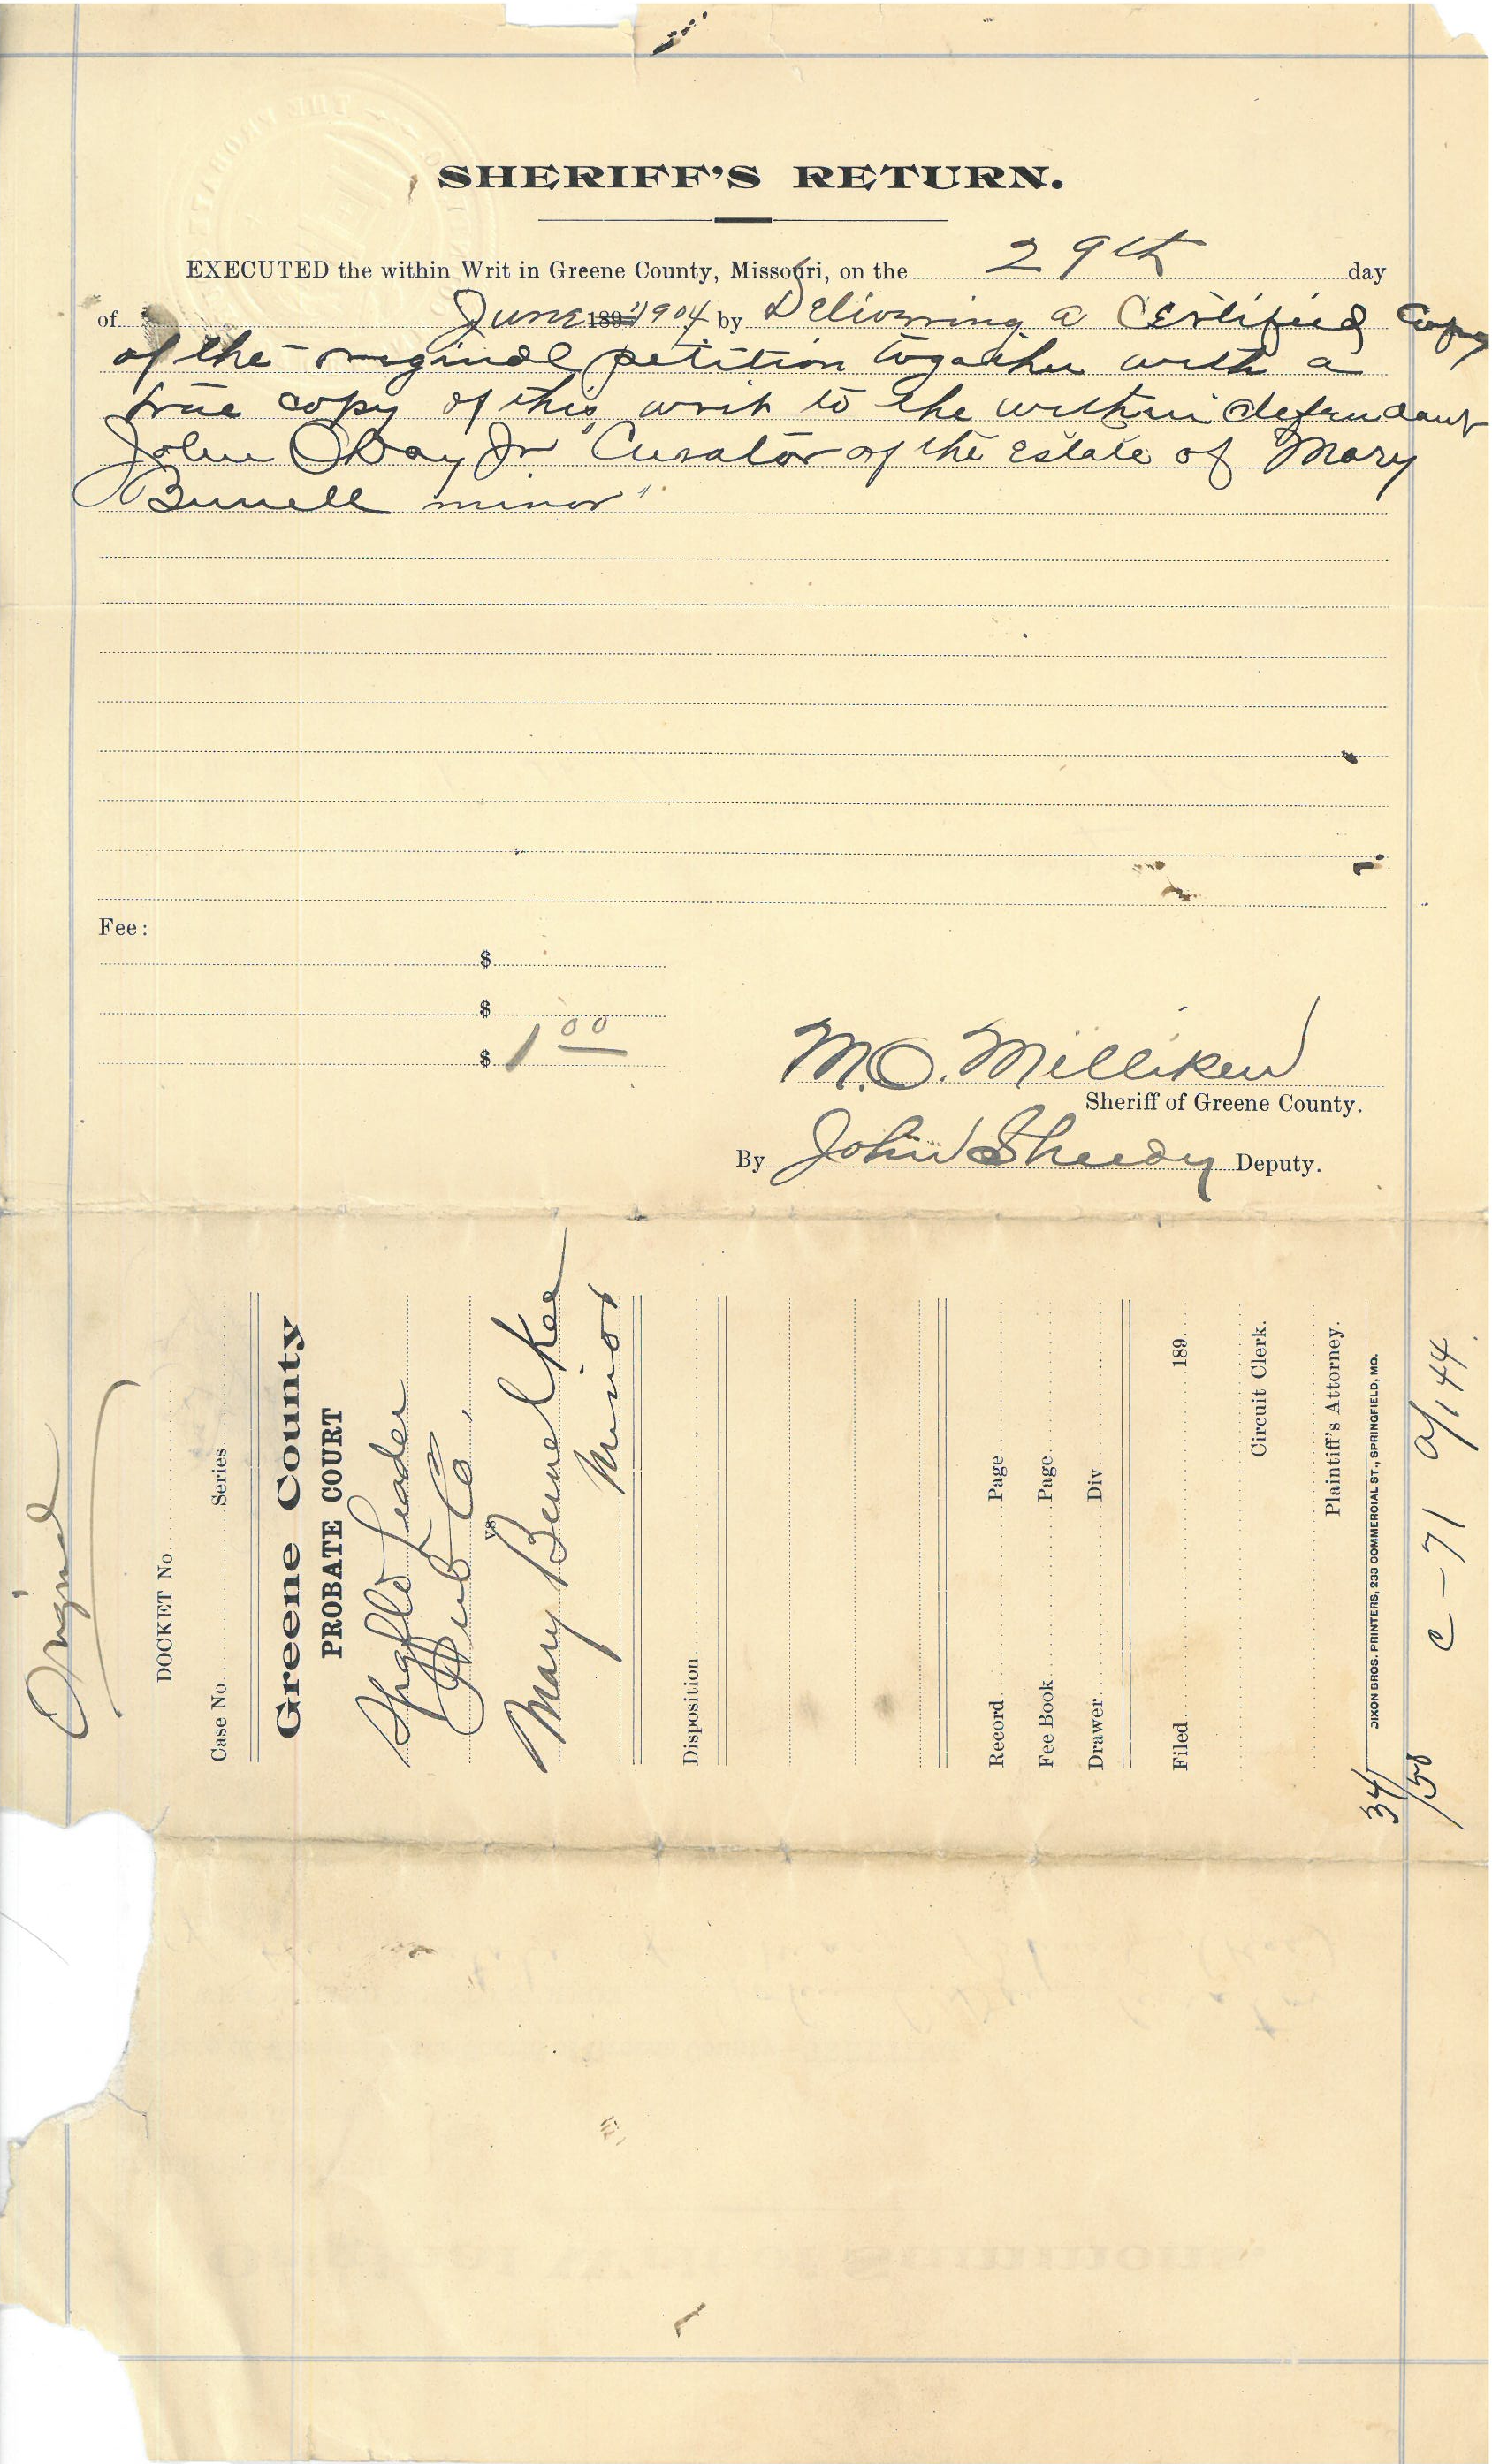 SHERIFF'S RETURN.
EXECUTED the within Writ in Greene County, Missouri, on the 29th day
of June 189 1904 by Delivering a Certified Copy
of the original petition together with a
true copy of this writ to the within defendant
John O Day Jr Curator of the Estate of Mary
minor
Fee:
$
$
$ 1 00
M.O. Milliken
Sheriff of Greene County.
By John Sheedy Deputy.
Original
DOCKET No
Case No. Series
Greene County
PROBATE COURT
Spgfld Leader
Pub Co,
vs
Mary
Minor
Disposition
Record Page
Fee Book Page
Drawer Div.
Filed 189
Circuit Clerk.
Plaintiff's Attorney.
DIXON BROS. PRINTERS, 233 COMMERCIAL ST., SPRINGFIELD, MO.
34/58
C-71